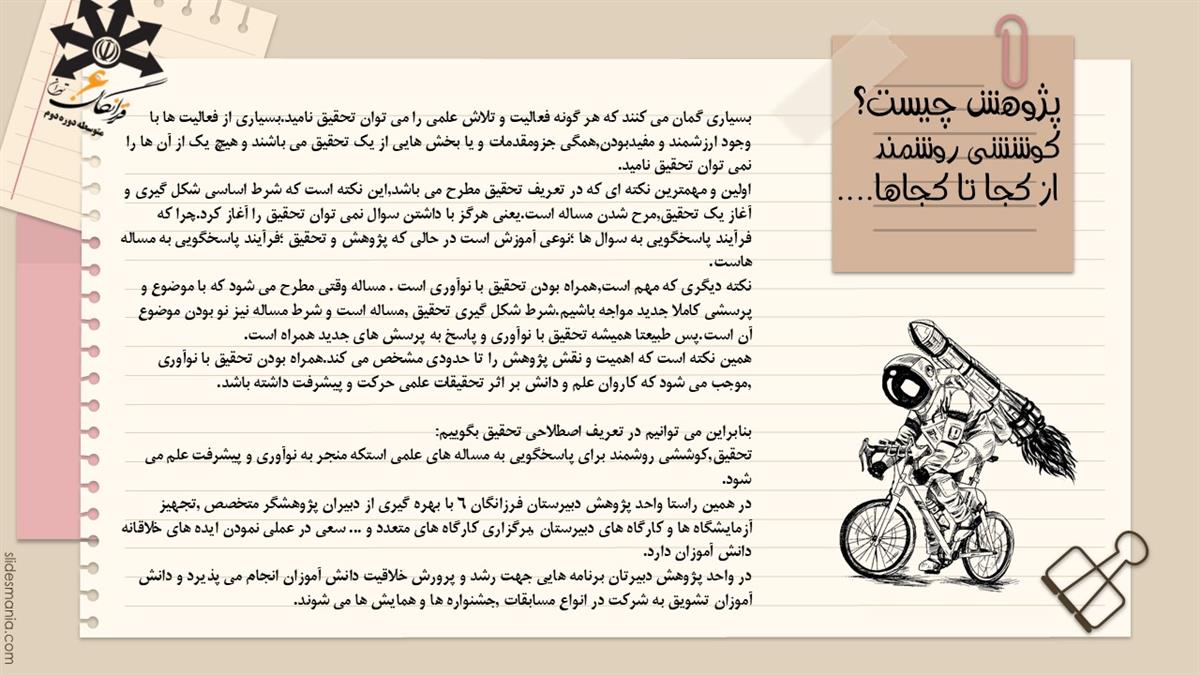 پژوهش چیست؟
کوششی روشمند
از کجا تا کجاها....
بسیاری گمان می کنند که هر گونه فعالیت و تلاش علمی را می توان تحقیق نامید.بسیاری از فعالیت ها با
وجود ارزشمند و مفیدبودن,همگی جزومقدمات و یا بخش هایی از یک تحقیق می باشند و هیچ یک از آن ها را
نمی توان تحقیق نامید.
اولین و مهمترین نکته ای که در تعریف تحقیق مطرح می باشد,این نکته است که شرط اساسی شکل گیری و
آغاز یک تحقیق,مرح شدن مساله است.یعنی هرگز با داشتن سوال نمی توان تحقیق را آغاز کرد.چرا که
فرآیند پاسخگویی به سوال ها ؛نوعی آموزش است در حالی که پژوهش و تحقیق ؛فرآیند پاسخگویی به مساله
هاست.
نکته دیگری که مهم است,همراه بودن تحقیق با نوآوری است . مساله وقتی مطرح می شود که با موضوع و
پرسشی کاملا جدید مواجه باشیم.شرط شکل گیری تحقیق ,مساله است و شرط مساله نیز نو بودن موضوع
آن است.پس طبیعتا همیشه تحقیق با نوآوری و پاسخ به پرسش های جدید همراه است.
همین نکته است که اهمیت و نقش پژوهش را تا حدودی مشخص می کند.همراه بودن تحقیق با نوآوری
,موجب می شود که کاروان علم و دانش بر اثر تحقیقات علمی حرکت و پیشرفت داشته باشد.
بنابراین می توانیم در تعریف اصطلاحی تحقیق بگوییم:
تحقیق,کوششی روشمند برای پاسخگویی به مساله های علمی استکه منجر به نوآوری و پیشرفت علم می
شود.
در همین راستا واحد پژوهش دبیرستان فرزانگان ٦ با بهره گیری از دبیران پژوهشگر متخصص ,تجهیز
آزمایشگاه ها و کارگاه های دبیرستان ,برگزاری کارگاه های متعدد و ... سعی در عملی نمودن ایده های خلاقانه
دانش آموزان دارد.
در واحد پژوهش دبیرتان برنامه هایی جهت رشد و پرورش خلاقیت دانش آموزان انجام می پذیرد و دانش
آموزان تشویق به شرکت در انواع مسابقات ,جشنواره ها و همایش ها می شوند.
فرزانگان ۶ تهران
متوسطه دوره دوم
slidesmania.com